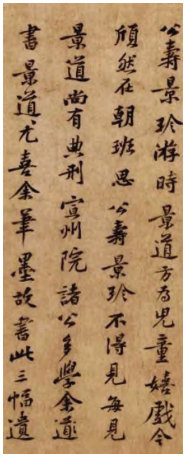 公壽景珍游時景道方為兒童嬉戲今
頎然在朝班思公壽景珍不得見每見
景道尚有典刑宣州院諸公多學余道
書景道尤喜余筆墨故書此三幅遺